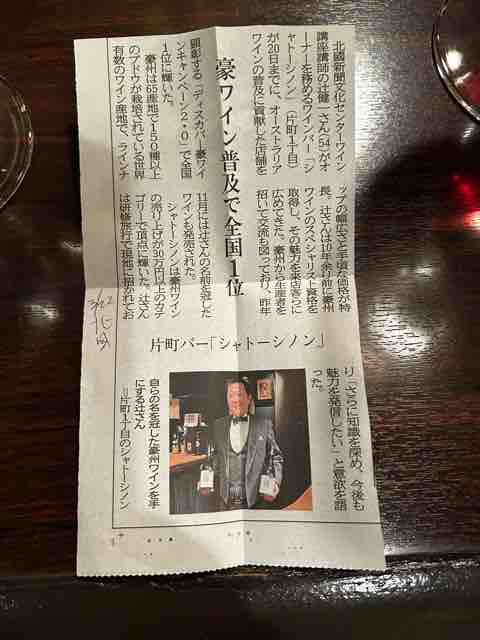 豪ワイン普及で全国1位
片町バー「シャトーシノン」
北國新聞文化センターワイン
講座講師の辻健一さん(54)がオ
ーナーを務めるワインバー「シ
ャトーシノン」(片町1丁目)
が20日までに、オーストラリア
ワインの普及に貢献した店舗を
顕彰する「ディスカバー豪ワイ
ンキャンペーン2.0」で全国
1位に輝いた。
豪州は65産地で150種以上
のブドウが栽培されている世界
有数のワイン産地で、ラインナ
ップの幅広さと手頃な価格が特
長。辻さんは10年余り前に豪州
ワインのスペシャリスト資格を
取得し、その魅力を来店客らに
広めてきた。豪州から生産者を
招いて交流も図っており、昨年
11月には辻さんの名前を冠した
ワインも発売された。
シャトーシノンは豪州ワイン
の売り上げが30万円以上のカテ
ゴリーで頂点に輝いた。辻さん
は研修旅行で現地に招かれてお
り「さらに知識を深め、今後も
魅力を発信したい」と意欲を語
った。
自らの名を冠した豪州ワインを手
にする辻さん
=片町1丁目のシャトーシノン